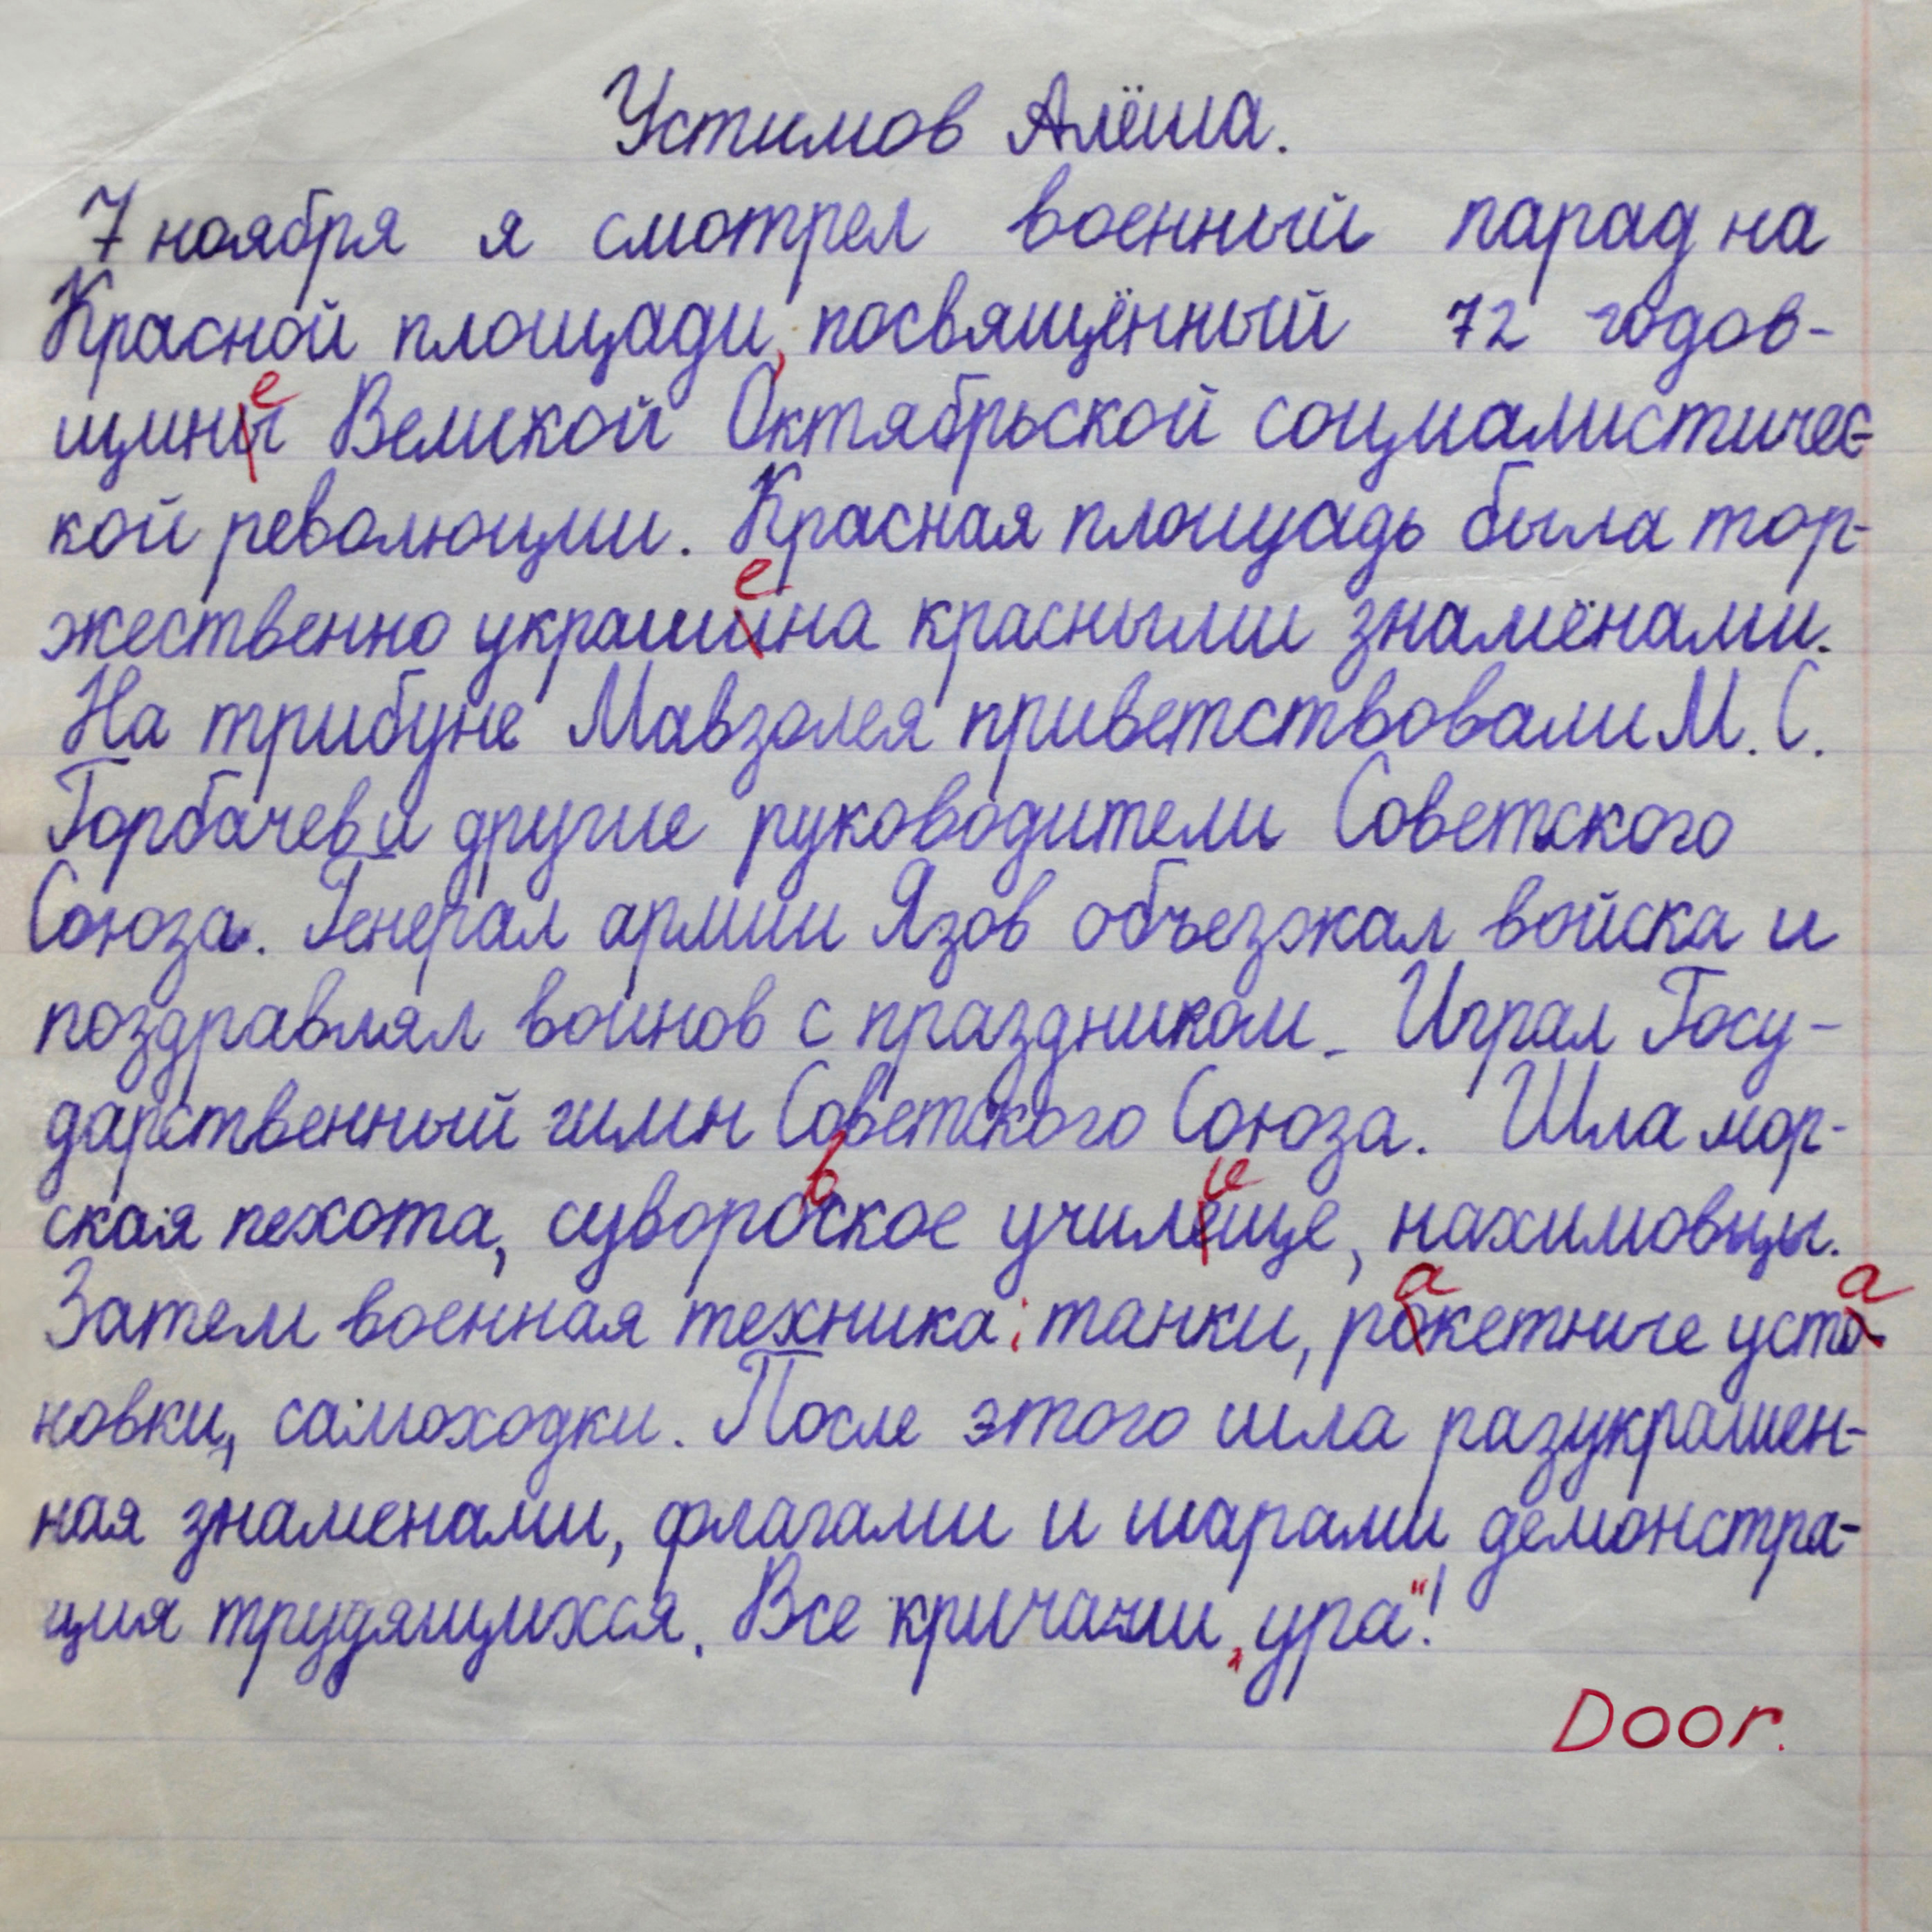 Устимов Алёша.
7 ноября я смотрел военный парад на
Красной площади, посвящённый 72 годов-
щины Великой Октябрьской социалистичес-
кой революции. Красная площадь была тор-
жественно украшина красными знамёнами.
На трибуне Мавзолея приветствовали М. С.
Горбачев и другие руководители Советского
Союза. Генерал армии Язов объезжал войска и
поздравлял воинов с праздником. Играл Госу-
дарственный гимн Советского Союза. Шла мор-
ская пехота, сувороское училеще, нахимовцы.
Затем военная техника: танки, рокетные усто
новки, самоходки. После этого шла разукрашен-
ная знаменами, флагами и шарами демонстра-
ция трудящихся. Все кричали „ура"!
Door.